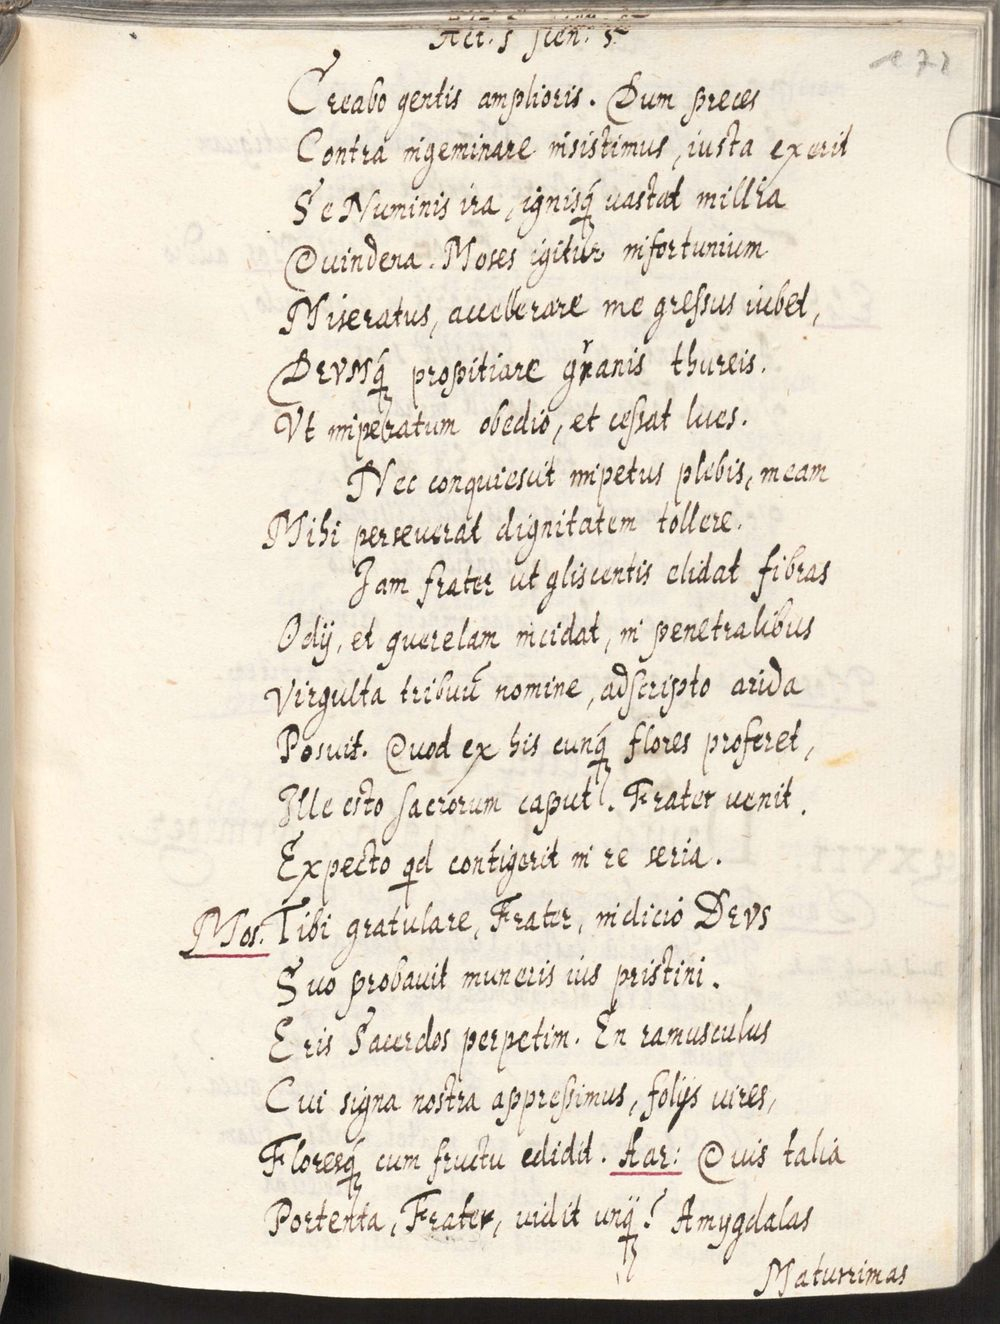 Act. 5 scen. 5.
171
Creabo gentis amplioris. Dum preces
Contra ingeminare insistimus, iusta exerit
Se Numinis ira, ignisq́ vastat millia
Quindena. Moses igitur infortunium
Miseratus, accellerare me greſsus iubet,
DEVMq́ propitiare granis thureis.
Vt imperatum obedio, et ceſsat lues.
Nec conquiescit impetus plebis, meam
Mihi perseverat dignitatem tollere.
Jam frater ut gliscentis elidat fibras
Odij, et querelam incidat, in penetralibus
Virgulta tribuū nomine, adscripto arida
Posuit. Quod ex his cunq́ flores proferet,
Ille esto sacrorum caput. Frater venit.
Expecto qd contigerit in re seria.
Mos. Tibi gratulare, Frater, indicio DEVS
Suo probavit muneris ius pristini.
Eris Sacerdos perpetim. En ramusculus
Cui signa nostra appreſsimus, folijs vires,
Floresq́ cum fructu edidit. Aar: Quis talia
Portenta, Frater, vidit unq́? Amygdalas
Maturrimas